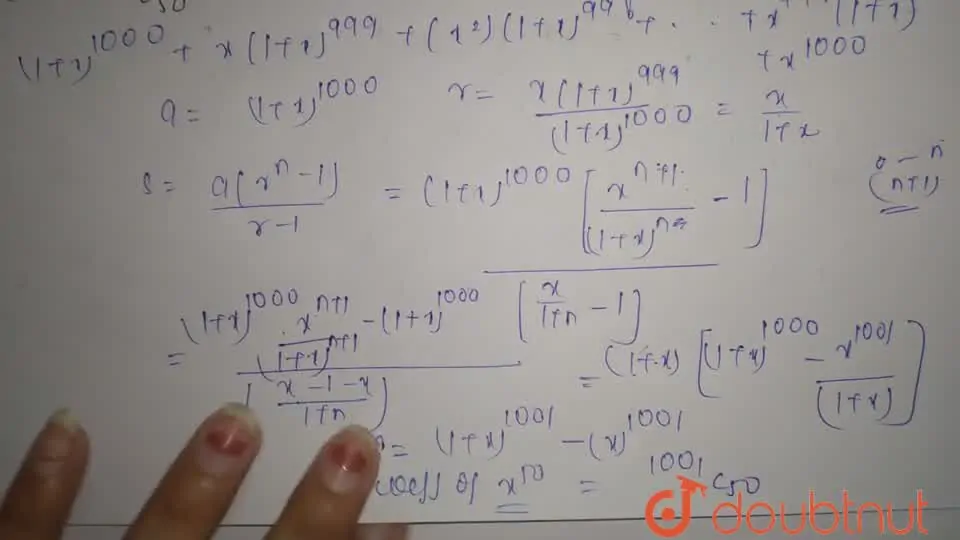 50
(1+x)^1000 + x(1+x)^999 + (x²)(1+x)^998 + . . + x (1+x)
+ x^1000
a = (1+x)^1000 r = x(1+x)^999 / (1+x)^1000 = x / 1+x
S = a(r^n - 1) / r-1 = (1+x)^1000 [x^n+1 / (1+x)^n - 1] / [x / 1+n - 1]
0 - n
(n+1)
= (1+x)^1000 x^n+1 / (1+x)^n+1 - (1+x)^1000 / (x-1-x / 1+n) = (1+x) [(1+x)^1000 - x^1001 / (1+x)]
= (1+x)^1001 - (x)^1001
coeff of x^50 = ^1001C50
doubtnut